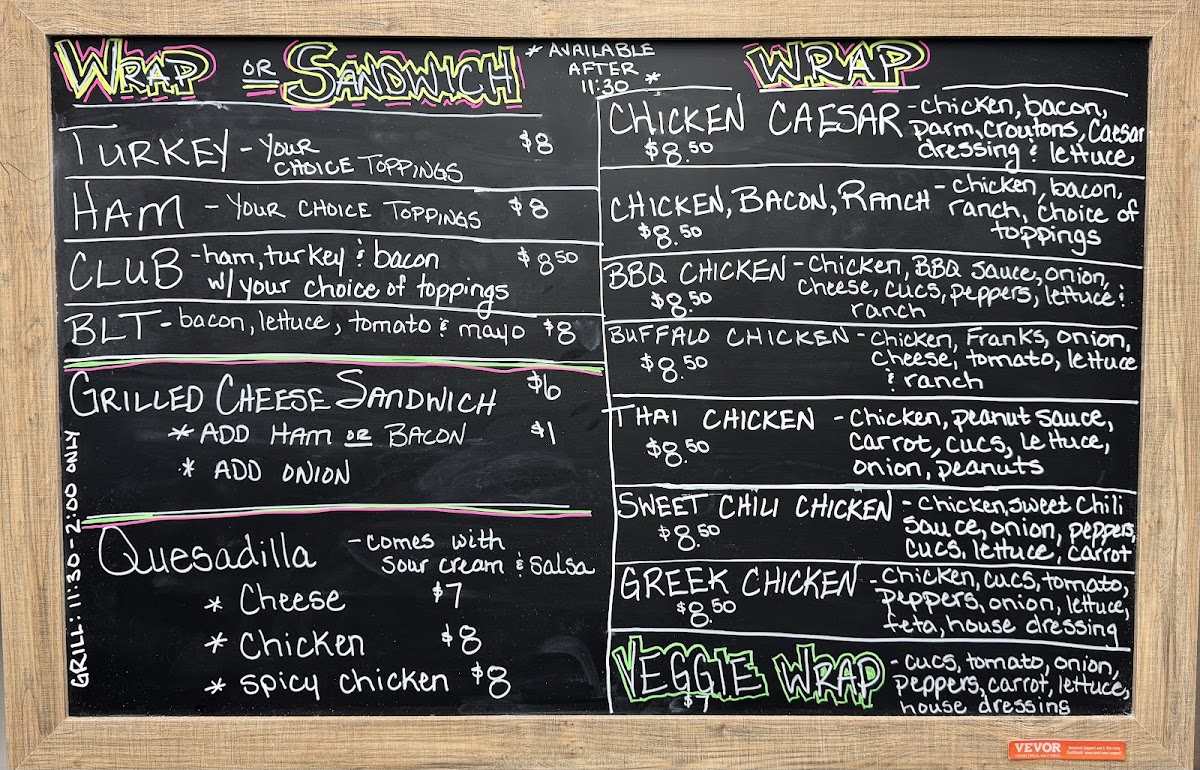 WRAP OR SANDWICH
* AVAILABLE
AFTER
11:30 *
TURKEY - YOUR $8
CHOICE TOPPINGS
HAM - YOUR CHOICE TOPPINGS $8
CLUB - ham, turkey & bacon $8.50
w/ your choice of toppings
BLT - bacon, lettuce, tomato & mayo $8
GRILLED CHEESE SANDWICH $6
* ADD HAM OR BACON $1
* ADD ONION
GRILL: 11:30-2:00 ONLY
Quesadilla - comes with
sour cream & salsa
* Cheese $7
* Chicken $8
* spicy chicken $8
WRAP
CHICKEN CAESAR - chicken, bacon,
$8.50 parm, croutons, Caesar
dressing & lettuce
CHICKEN, BACON, RANCH - chicken, bacon,
$8.50 ranch, choice of
toppings
BBQ CHICKEN - Chicken, BBQ sauce, onion,
$8.50 cheese, cucs, peppers, lettuce &
ranch
BUFFALO CHICKEN - Chicken, Franks, onion,
$8.50 cheese, tomato, lettuce
& ranch
THAI CHICKEN - Chicken, peanut sauce,
$8.50 carrot, cucs, lettuce,
onion, peanuts
SWEET CHILI CHICKEN - Chicken, sweet chili
$8.50 sauce, onion, peppers,
cucs, lettuce, carrot
GREEK CHICKEN - Chicken, cucs, tomato,
$8.50 peppers, onion, lettuce,
feta, house dressing
VEGGIE WRAP - cucs, tomato, onion,
$7 peppers, carrot, lettuce,
house dressing
VEVOR